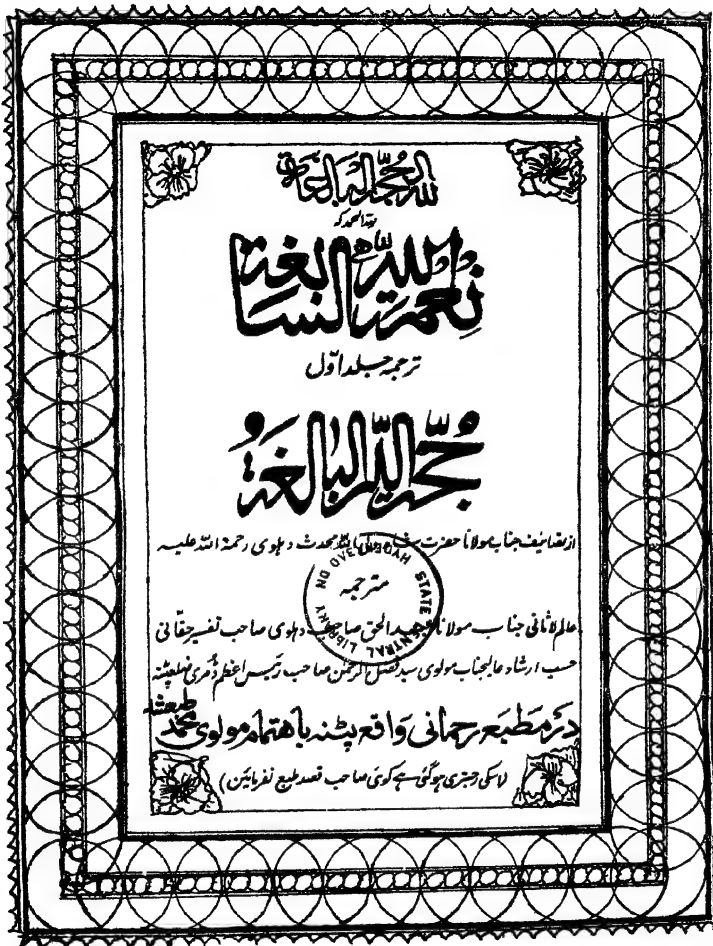 للہ الحجۃ البالغۃ
للہ الحمد کہ
نعمۃ اللہ السابغۃ
ترجمہ جلد اول
حجۃ اللہ البالغۃ
از تصانیف جناب مولانا حضرت شاہ ولی اللہ محدث دہلوی رحمۃ اللہ علیہ
مترجمہ
HYDERABAD STATE CENTRAL LIBRARY
عالم لاثانی جناب مولانا عبدالحق صاحب دہلوی صاحب تفسیر حقانی
حسب ارشاد عالیجناب مولوی سید فضل الرحمن صاحب رئیس اعظم ضلع پٹنہ
در مطبع رحمانی واقع پٹنہ باہتمام مولوی محمد طبع شد
(اسکی رجسٹری ہوگئی ہے کوئی صاحب قصد طبع نفرمائین)